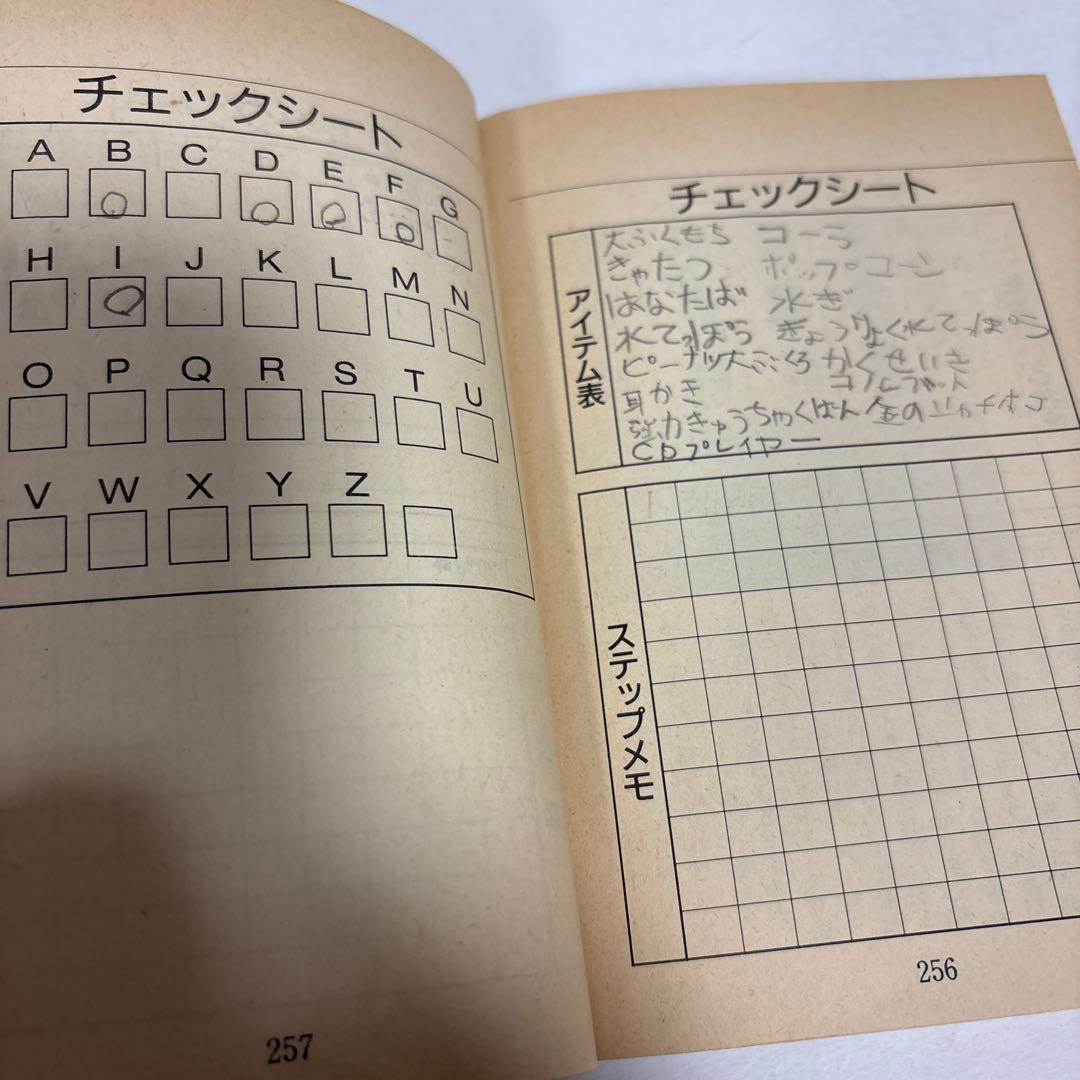 チェックシート
アイテム表
大ふくもち コーラ
きゃたつ ポップコーン
はなたば 水ぎ
水てっぽう きょうりょく水てっぽう
ピーナツ大ぶくろ かくせいき
耳かき
強力きゅうちゃくばん 金の
CDプレイヤー
ステップメモ
256
チェックシート
A B C D E F G
H I J K L M N
O P Q R S T U
V W X Y Z
257